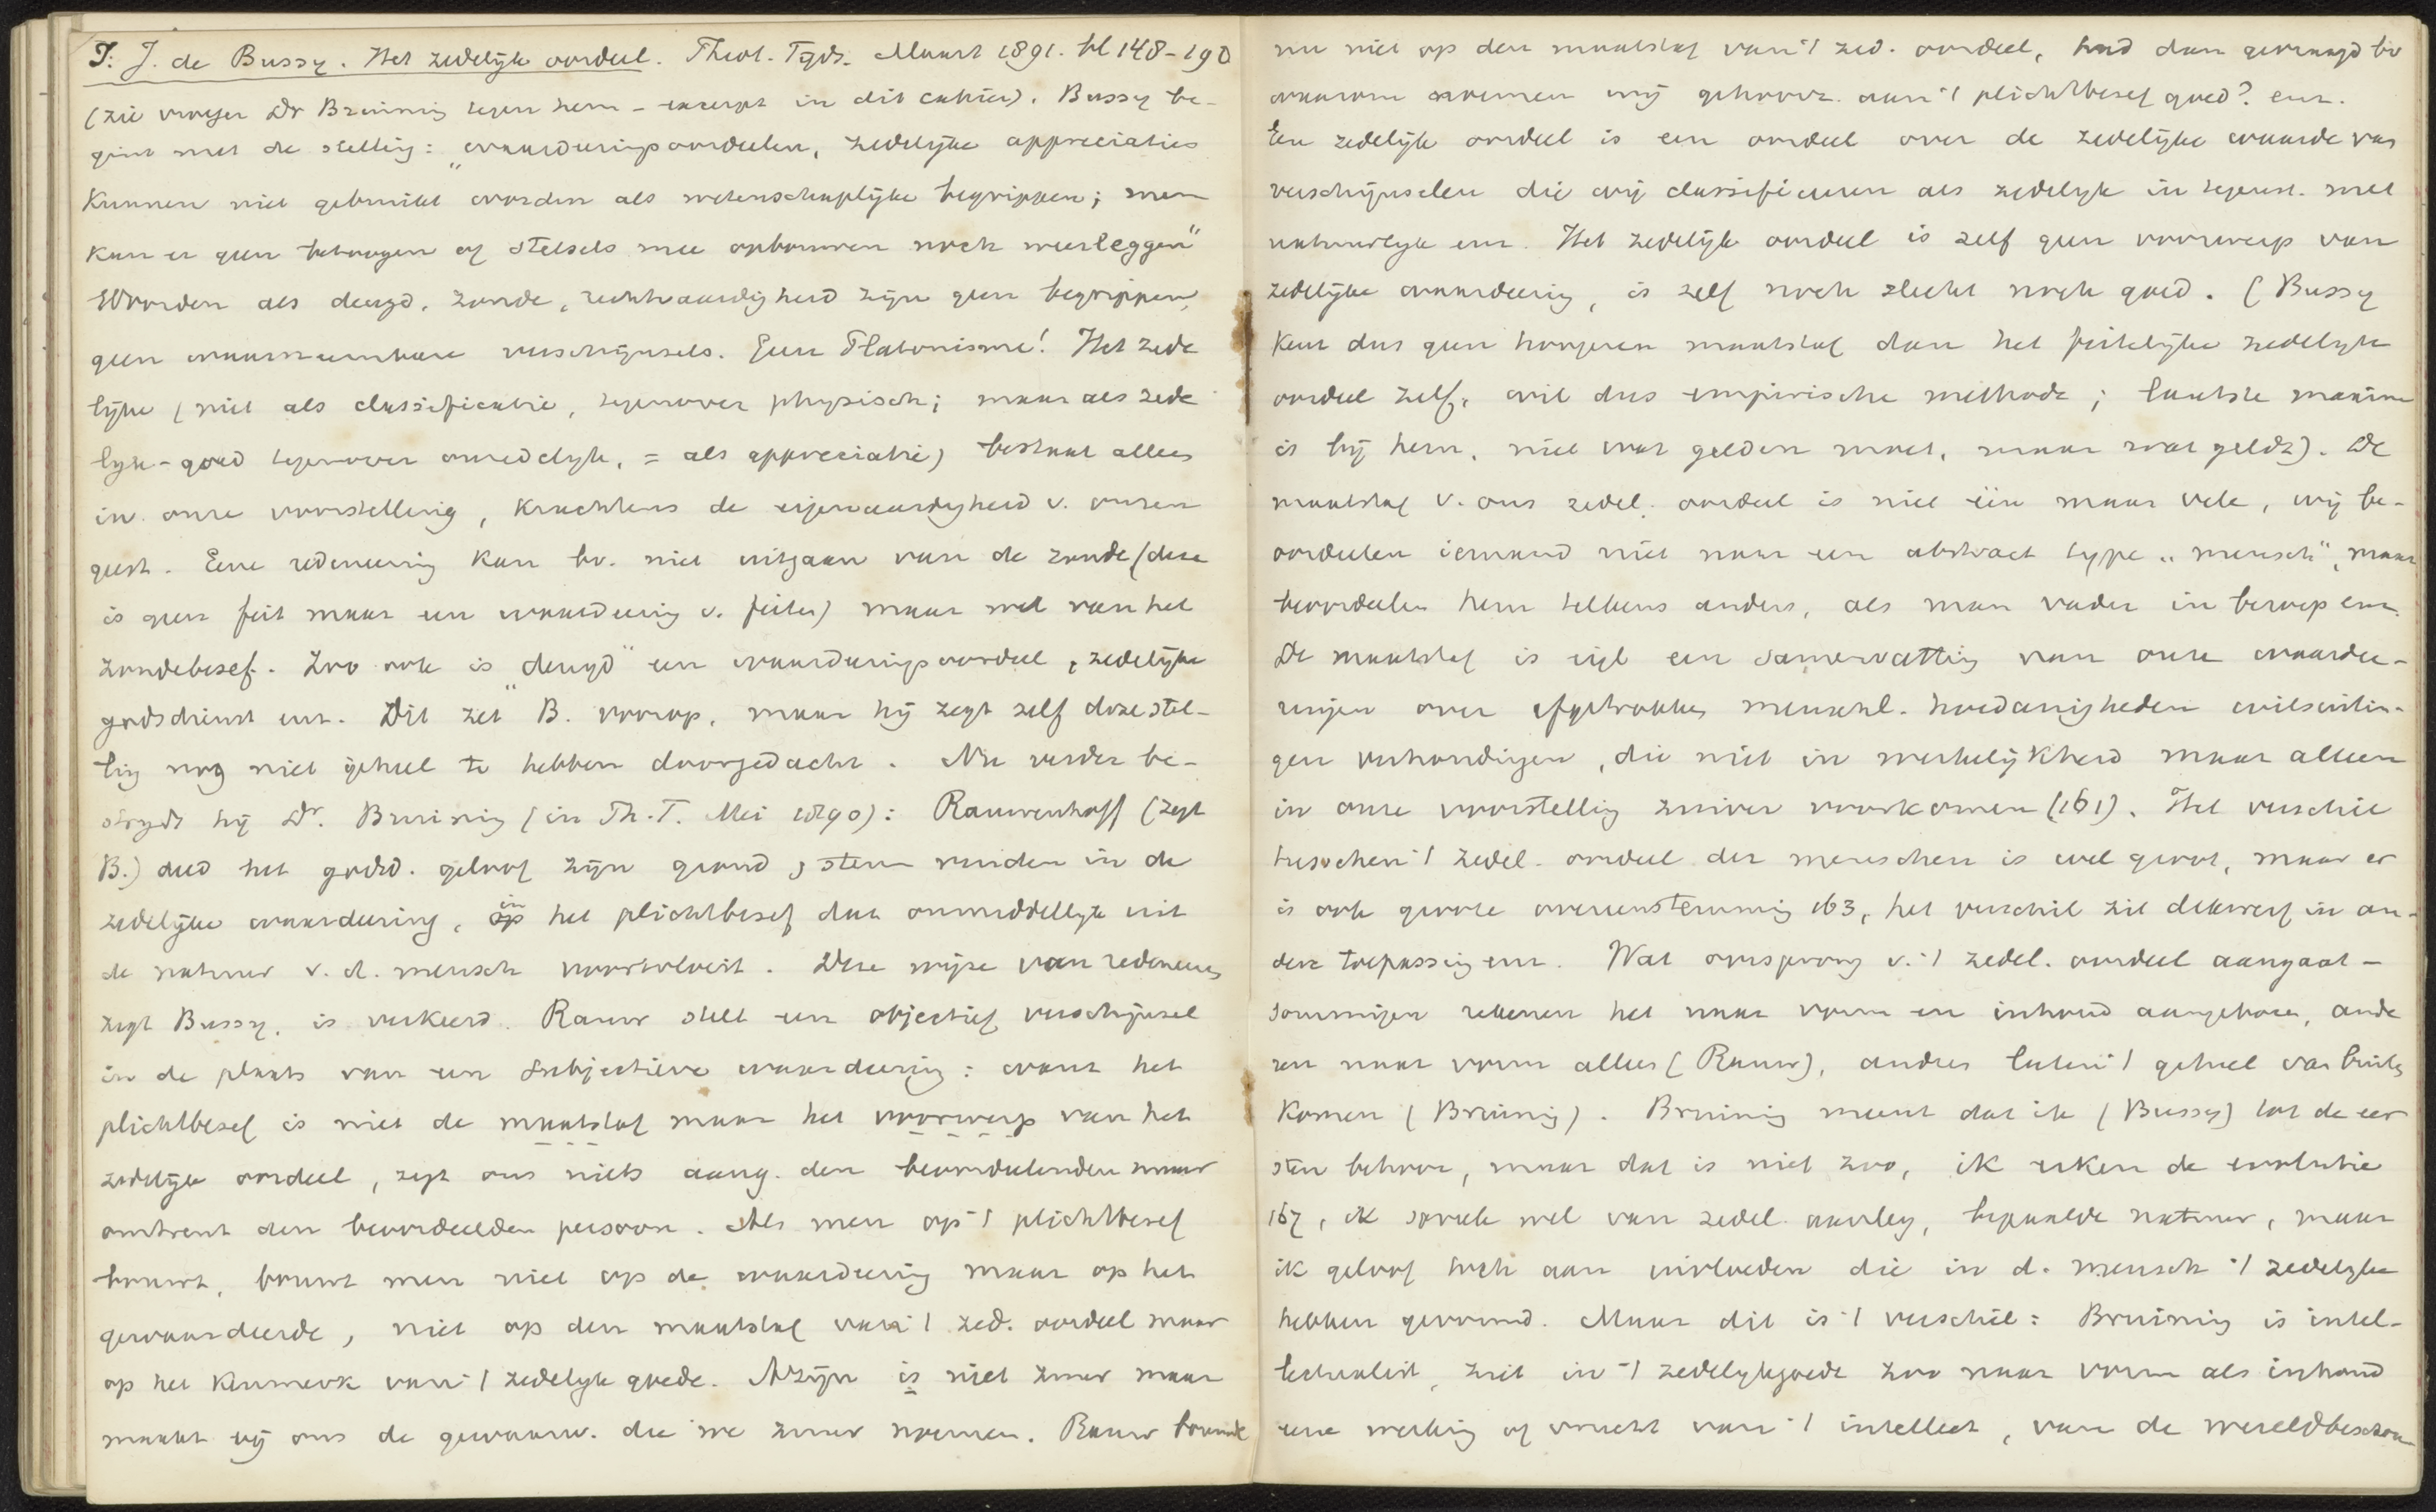 I. J. de Bussy. Het zedelijk oordeel. Theol. Tijds. Maart 1891. bl 148-190
(zie vroeger Dr Bruinig tegen hem - excerpt in dit cahier). Bussy be-
gint met de stelling: „waardeeringsoordeelen, zedelijke appreciaties
kunnen niet gebruikt worden als wetenschaplijke begrippen; men
kan er geen betoogen of stelsels mee opbouwen noch weerleggen"
Woorden als deugd, zonde, rechtvaardigheid zijn geen begrippen,
geen waarneembare verschijnsels. Geen Platonisme! Het zede
lijke (niet als classificatie, tegenover physisch; maar als zede
lijk-goed tegenover onzedelijk, = als appreciatie) bestaat alleen
in onze voorstelling, krachtens de eigenaardigheid v. onzen
geest. Eene redeneering kan bv. niet uitgaan van de zonde (deze
is geen feit maar een waardeering v. feiten) maar wel van het
zondebesef. Zoo ook is „deugd" een waardeeringsoordeel, zedelijke
godsdienst enz. Dit zet B. voorop, maar hij zegt zelf deze stel-
ling nog niet geheel te hebben doorgedacht. Nu verder be-
strijdt hij Dr. Bruinig (in Th. T. Mei 1890): Rauwenhoff (zegt
B.) deed het godsd. geloof zijn grond & steun vinden in de
zedelijke waardeering, in het plichtbesef dat onmiddellijk uit
de natuur v. d. mensch voortvloeit. Deze wijze van redeneeren,
zegt Bussy, is verkeerd. Rauw stelt een objectief verschijnsel
in de plaats van een subjectieve waardeering: want het
plichtbesef is niet de maatstaf maar het voorwerp van het
zedelijk oordeel, zegt ons niets aang. den beoordeelenden maar
omtrent den beoordeelden persoon. Als men op 't plichtbesef
bouwt, bouwt men niet op de waardeering maar op het
gewaardeerde, niet op den maatstaf van 't zed. oordeel maar
op het kenmerk van 't zedelijk goede. Azijn is niet zuur maar
maakt bij ons de gewaarw. die we zuur noemen. Rauw bouwde
nu niet op den maatstaf van 't zed. oordeel, had dan gevraagd bv
waarom noemen wij gehoorz. aan 't plichtbesef goed? enz.
Een zedelijk oordeel is een oordeel over de zedelijke waarde van
verschijnselen die wij classificeeren als zedelijk in tegenst. met
natuurlijk enz. Het zedelijk oordeel is zelf geen voorwerp van
zedelijke waardeering, is zelf noch slecht noch goed. (Bussy
kent dus geen hoogeren maatstaf dan het feitelijke zedelijk
oordeel zelf, wil dus empirische methode; laatste maxime
is bij hem, niet wat gelden moet, maar wat geldt). De
maatstaf v. ons zedel. oordeel is niet één maar vele, wij be-
oordeelen iemand niet naar een abstract type „mensch", maar
beoordeelen hem telkens anders, als man vader in beroep enz.
De maatstaf is eigl een samenvatting van onze waardee-
ringen over afgetrokken menschl. hoedanigheden wilsuitin-
gen verhoudingen, die niet in werkelijkheid maar alleen
in onze voorstelling zuiver voorkomen (161). Het verschil
tusschen 't zedel. oordeel der menschen is wel groot, maar er
is ook groote overeenstemming 163, het verschil zit dikwerf in an-
dere toepassing enz. Wat oorsprong v. 't zedel. oordeel aangaat -
sommigen rekenen het naar vorm en inhoud aangeboren, ande
ren naar vorm alleen (Rauw), andren laten 't geheel van buiten
komen (Bruinig). Bruinig meent dat ik (Bussy) tot de eer
sten behoor, maar dat is niet zoo, ik erken de evolutie
167, ik spreek wel van zedel. aanleg, bepaalde natuur, maar
ik geloof toch aan invloeden die in d. mensch 't zedelijke
hebben gevormd. Maar dit is 't verschil: Bruinig is intel-
lectualist, ziet in 't zedelijkgoede zoo naar vorm als inhoud
eene werking of vrucht van 't intellect, van de wereldbeschou